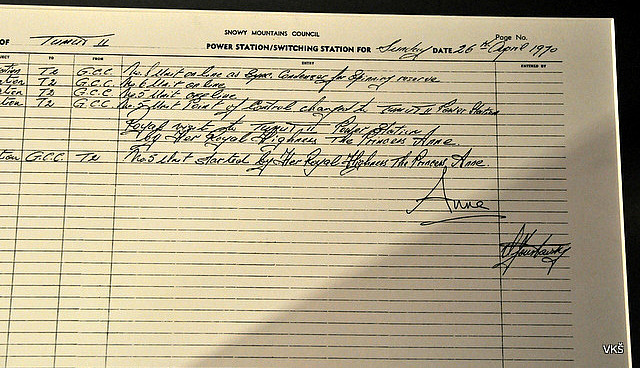 SNOWY MOUNTAINS COUNCIL
Page No.
OF TUMUT II POWER STATION/SWITCHING STATION FOR Sunday DATE 26th April 1970
TO FROM ENTRY ENTERED BY
T2 G.C.C. No. 1 Unit on line as Sync. Condenser for spinning reserve
T2 G.C.C. No 6 Unit on line
T2 G.C.C. No 5 Unit off line
T2 G.C.C. No 5 Unit Point of Control changed to TUMUT II Power Station
Royal visit to TUMUT II Power Station
by Her Royal Highness The Princess Anne.
G.C.C. T2 No. 5 Unit started by Her Royal Highness The Princess Anne
Anne
VKŠ